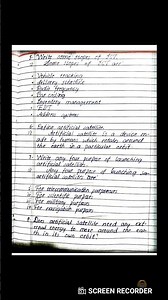 1. Write some scopes of ICT.
Some scopes of ICT are
Vehicle tracking
Radio frequency
Inventory management
EDI
Address system
Define artificial satellite.
artificial satellite is a device
made by humans which rotate around
the earth in a particular orbit.
Write any four purpose of launching
artificial satellite.
Any four purpose of launching
artificial satellite are
For telecommunication purposes
For scientific purpose
For military purpose
For navigation purpose
Does artificial satellite need any ext
ernal energy to move around the ear
th in its own orbit?
SCREEN RECORDER